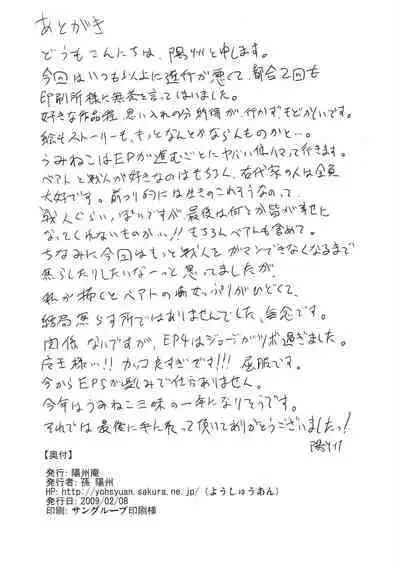 あとがき
どうもこんにちは、陽州と申します。
今回はいつも以上に進行が悪くて、都合2回も
印刷所様に無茶を言ってしまいました。
好きな作品程、思い入れの分納得が行かずもどかしいです。
絵もストーリーも、もっとなんとかならんものかと…。
うみねこはEPが進むごとにヤバい位ハマって行きます。
ベアトと戦人が好きなのはもちろん、右代家の人は全員
大好です。前つり的には生きのこれそうなのって、
戦人ぐらいっぽいですが最後は何とか皆が幸せに
なってくれないものかい!! もちろんベアトも含めて。
ちなみに今回はもっと戦人を ガマンできなくなるまで
焦らしたりしたいなーっと思ってましたが、
私が描くとベアトの痴女っぷりがひどくて、
結局焦らす所ではありませんでした、無念です。
関係ないですが、EP4はジョージがツボ過ぎました。
店主様…!! カッコ良すぎです!!! 屈服です。
今からEP5が楽しみで仕方ありません。
今年はうみねこ三昧の一年になりそうです。
それでは最後にまで頂いてありがとうございましたっ!
陽州
【奥付】
発行: 陽州庵
発行者: 孫 陽州
HP: http://yohsyuan.sakura.ne.jp/ (ようしゅうあん)
発行日: 2009/02/08
印刷: サングループ印刷様